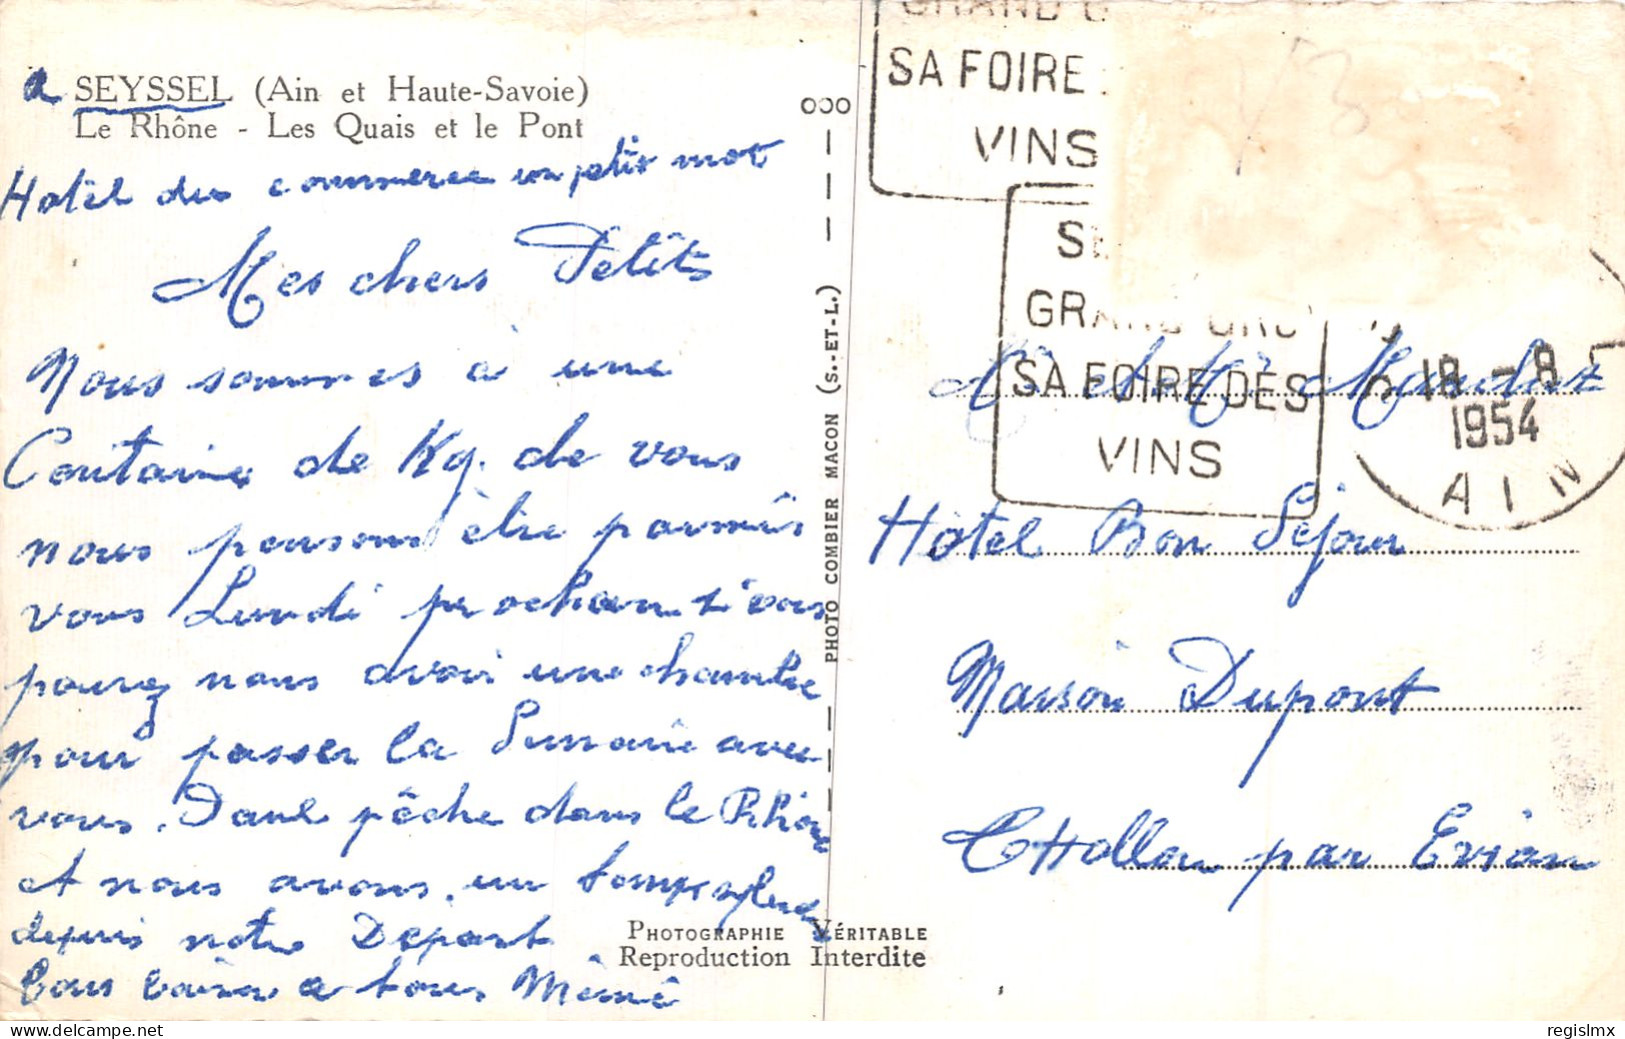 a SEYSSEL (Ain et Haute-Savoie)
Le Rhône - Les Quais et le Pont
Hotêl du commerce un petit mot
Mes chers Petits
Nous sommes à une
Centaine de Kg. de vous
nous pensons être parmis
vous Lundi prochain si vous
pourez nous avoir une chambre
pour passer la Semaine avec
vous. Paul pêche dans le Rhône
et nous avons un temps splend
depuis notre Départ
bons baisers a tous Mémé
PHOTO COMBIER MACON (S.-ET-L.)
PHOTOGRAPHIE VÉRITABLE
Reproduction Interdite
SA FOIRE
VINS
GRAND CRU
SA FOIRE DES
VINS
18 - 8
1954
AIN
Mr et Me
Hôtel Bon Séjour
Maison Dupont
THollon par Evian
regislmx